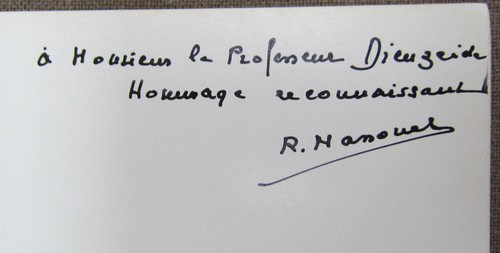 à Monsieur le Professeur Dieuzeide
Hommage reconnaissant
R. Massouet